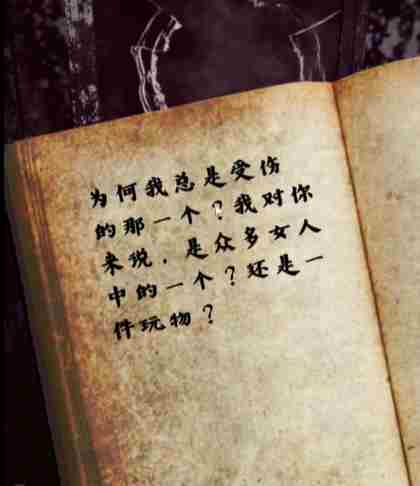 为何我总是受伤
的那一个？我对你
来说，是众多女人
中的一个？还是一
件玩物？